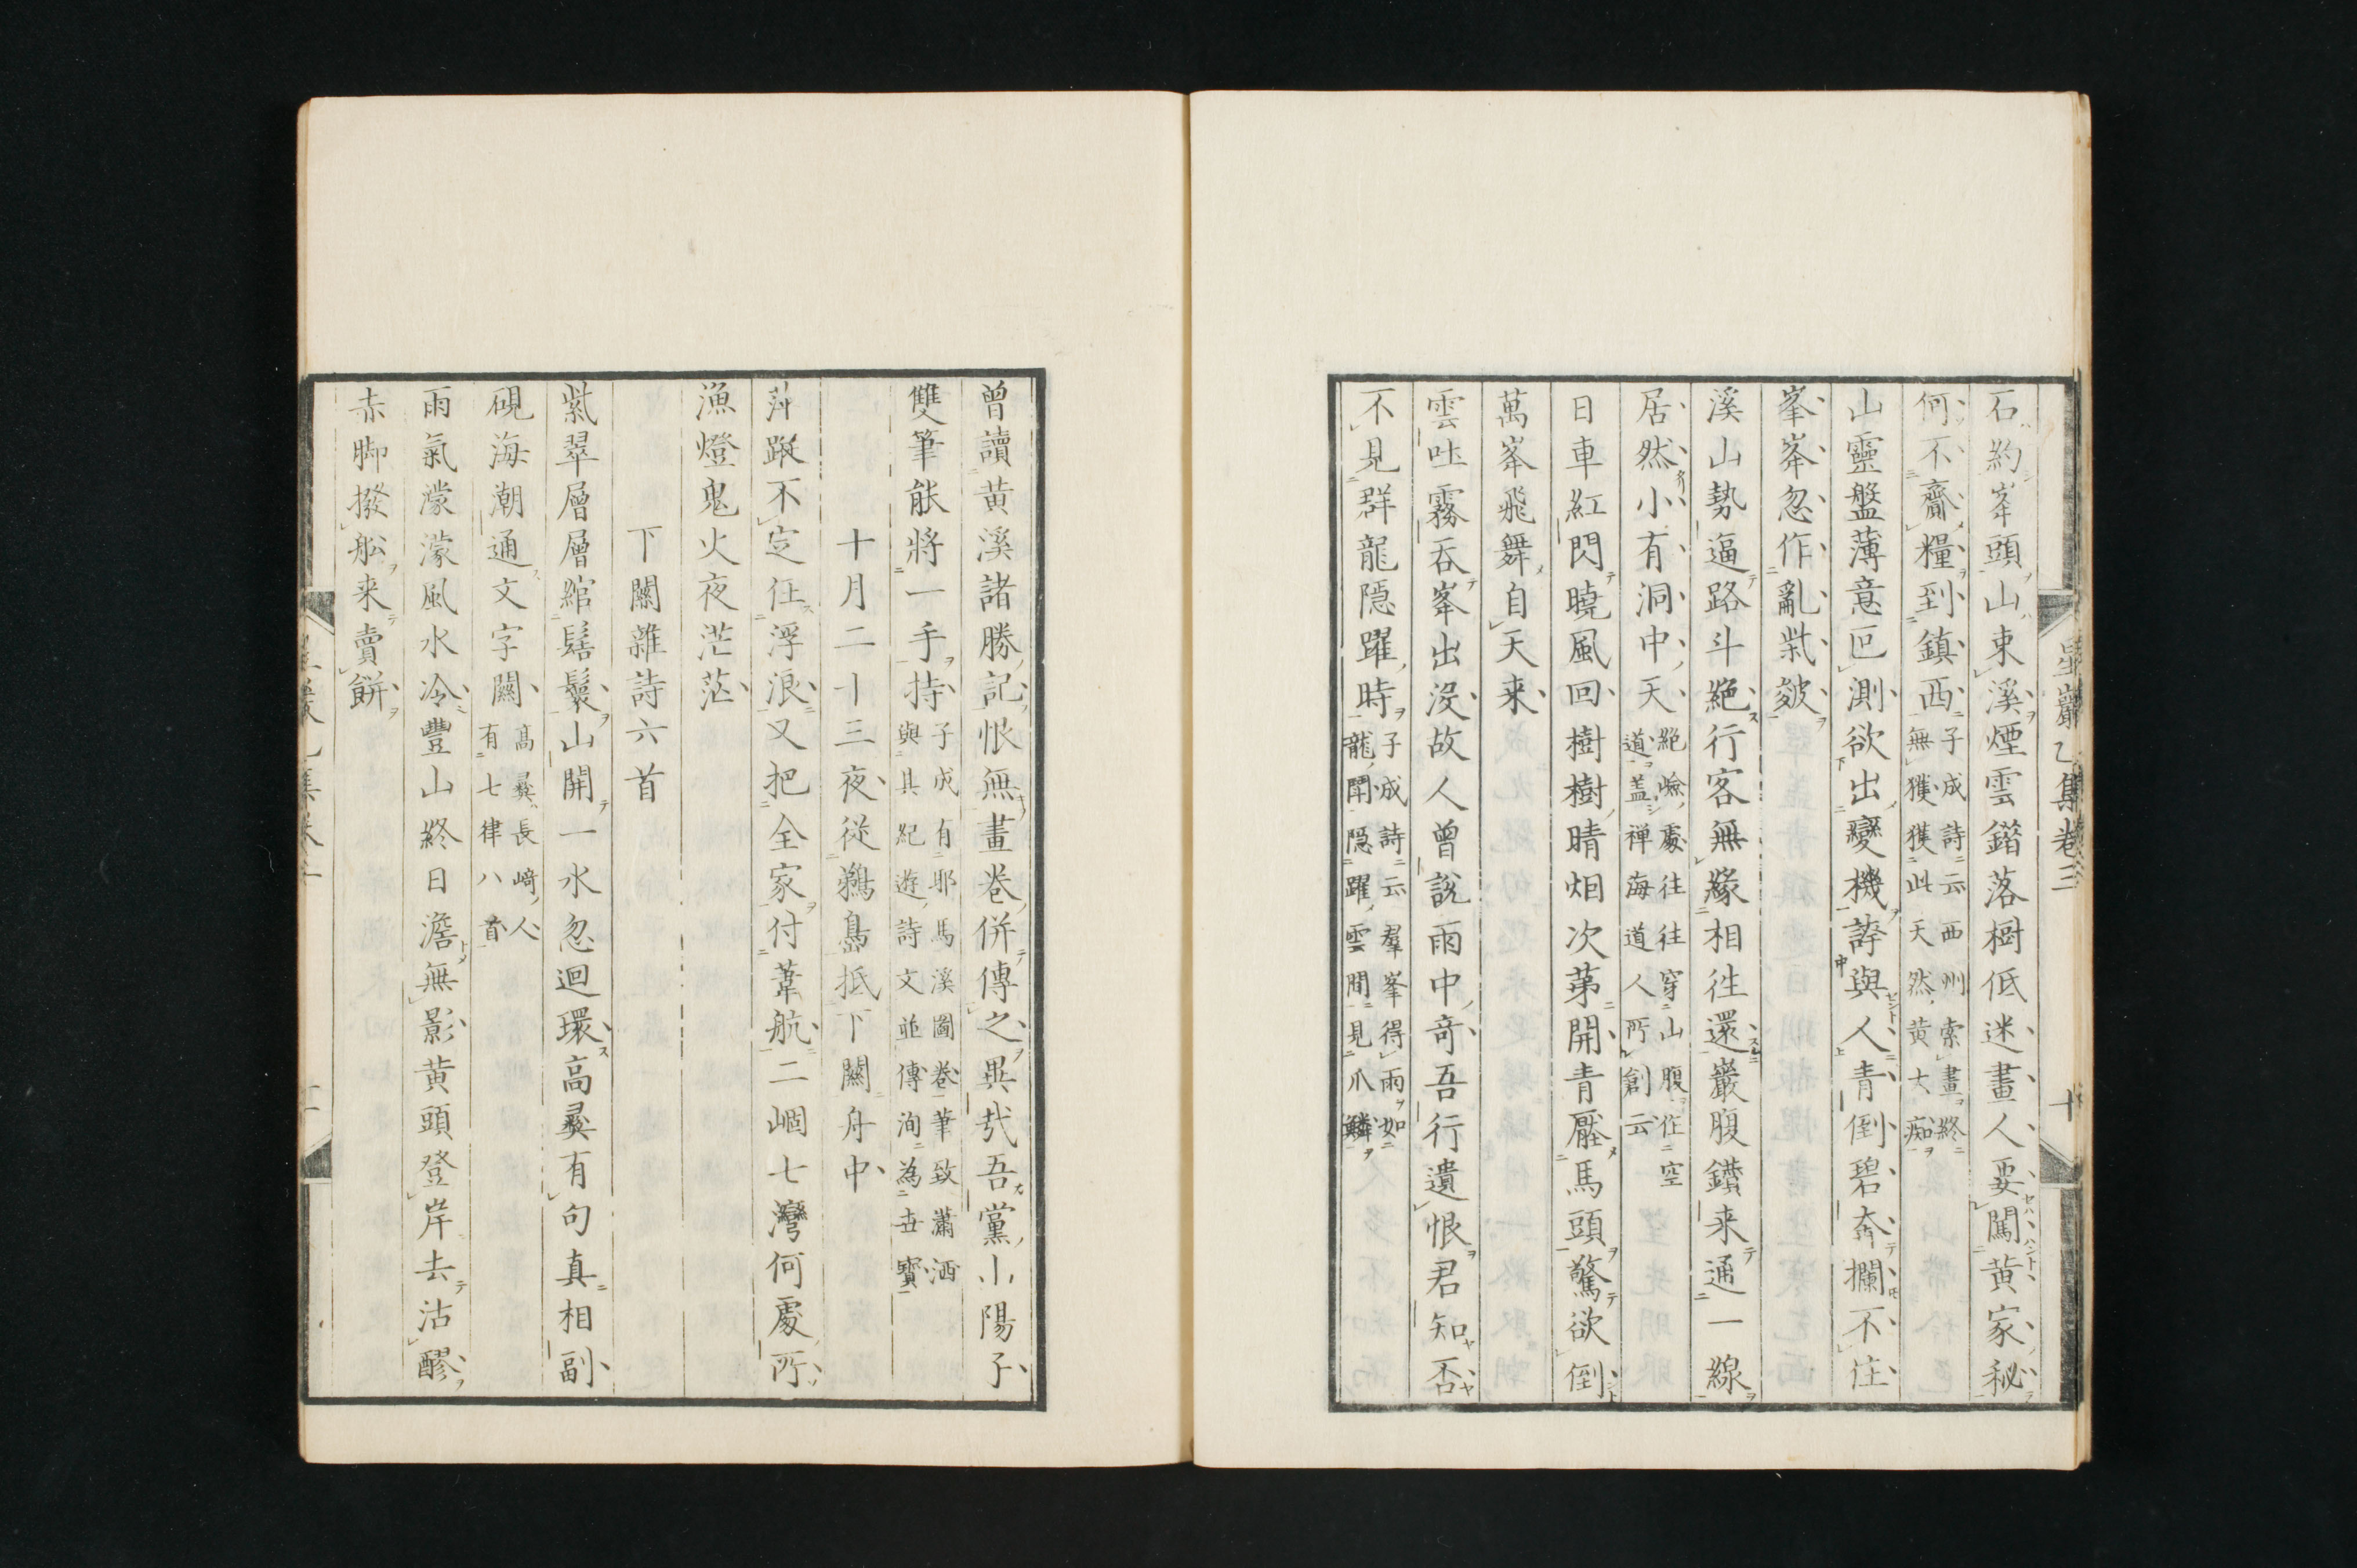 星巖乙集卷三
十
石約峯頭山束溪煙雲鎔落樹低迷畫人要闖黃家秘
何不齎糧到鎮西
子成詩云西州索畫終
無獲獲此天然黃大痴
山靈盤薄意叵測欲出變機誇與人青倒碧奔攔不住
峯峯忽作亂紫皴
溪山勢逼路斗絕行客無緣相往還巖腹鑽来通一線
居然小有洞中天
絕嶮處往往穿山腹作空
道盖禅海道人所創云
日車紅閃曉風回樹樹晴烟次第開青壓馬頭驚欲倒
萬峯飛舞自天来
雲吐霧吞峯出沒故人曾說雨中奇吾行遺恨君知否
不見群龍隱躍時
子成詩云羣峯得雨如
龍閗隠躍雲間見爪鱗
曾讀黃溪諸勝記恨無畫卷併傳之異哉吾黨小陽子
雙筆能將一手持
子成有耶馬溪圖卷筆致蕭洒
與其紀遊詩文並傳洵為壵寶
十月二十三夜從鵜島抵下關舟中
萍蹤不定任浮浪又把全家付葦航二崓七灣何處所
漁燈鬼火夜茫茫
下關雜詩六首
紫翠層層綰髻鬟山開一水忽迴環高彝有句真相副
硯海潮通文字關
高彛長﨑人
有七律八首
雨氣濛濛風水冷豐山終日澹無影黄頭登岸去沽醪
赤脚撥舩来賣餅